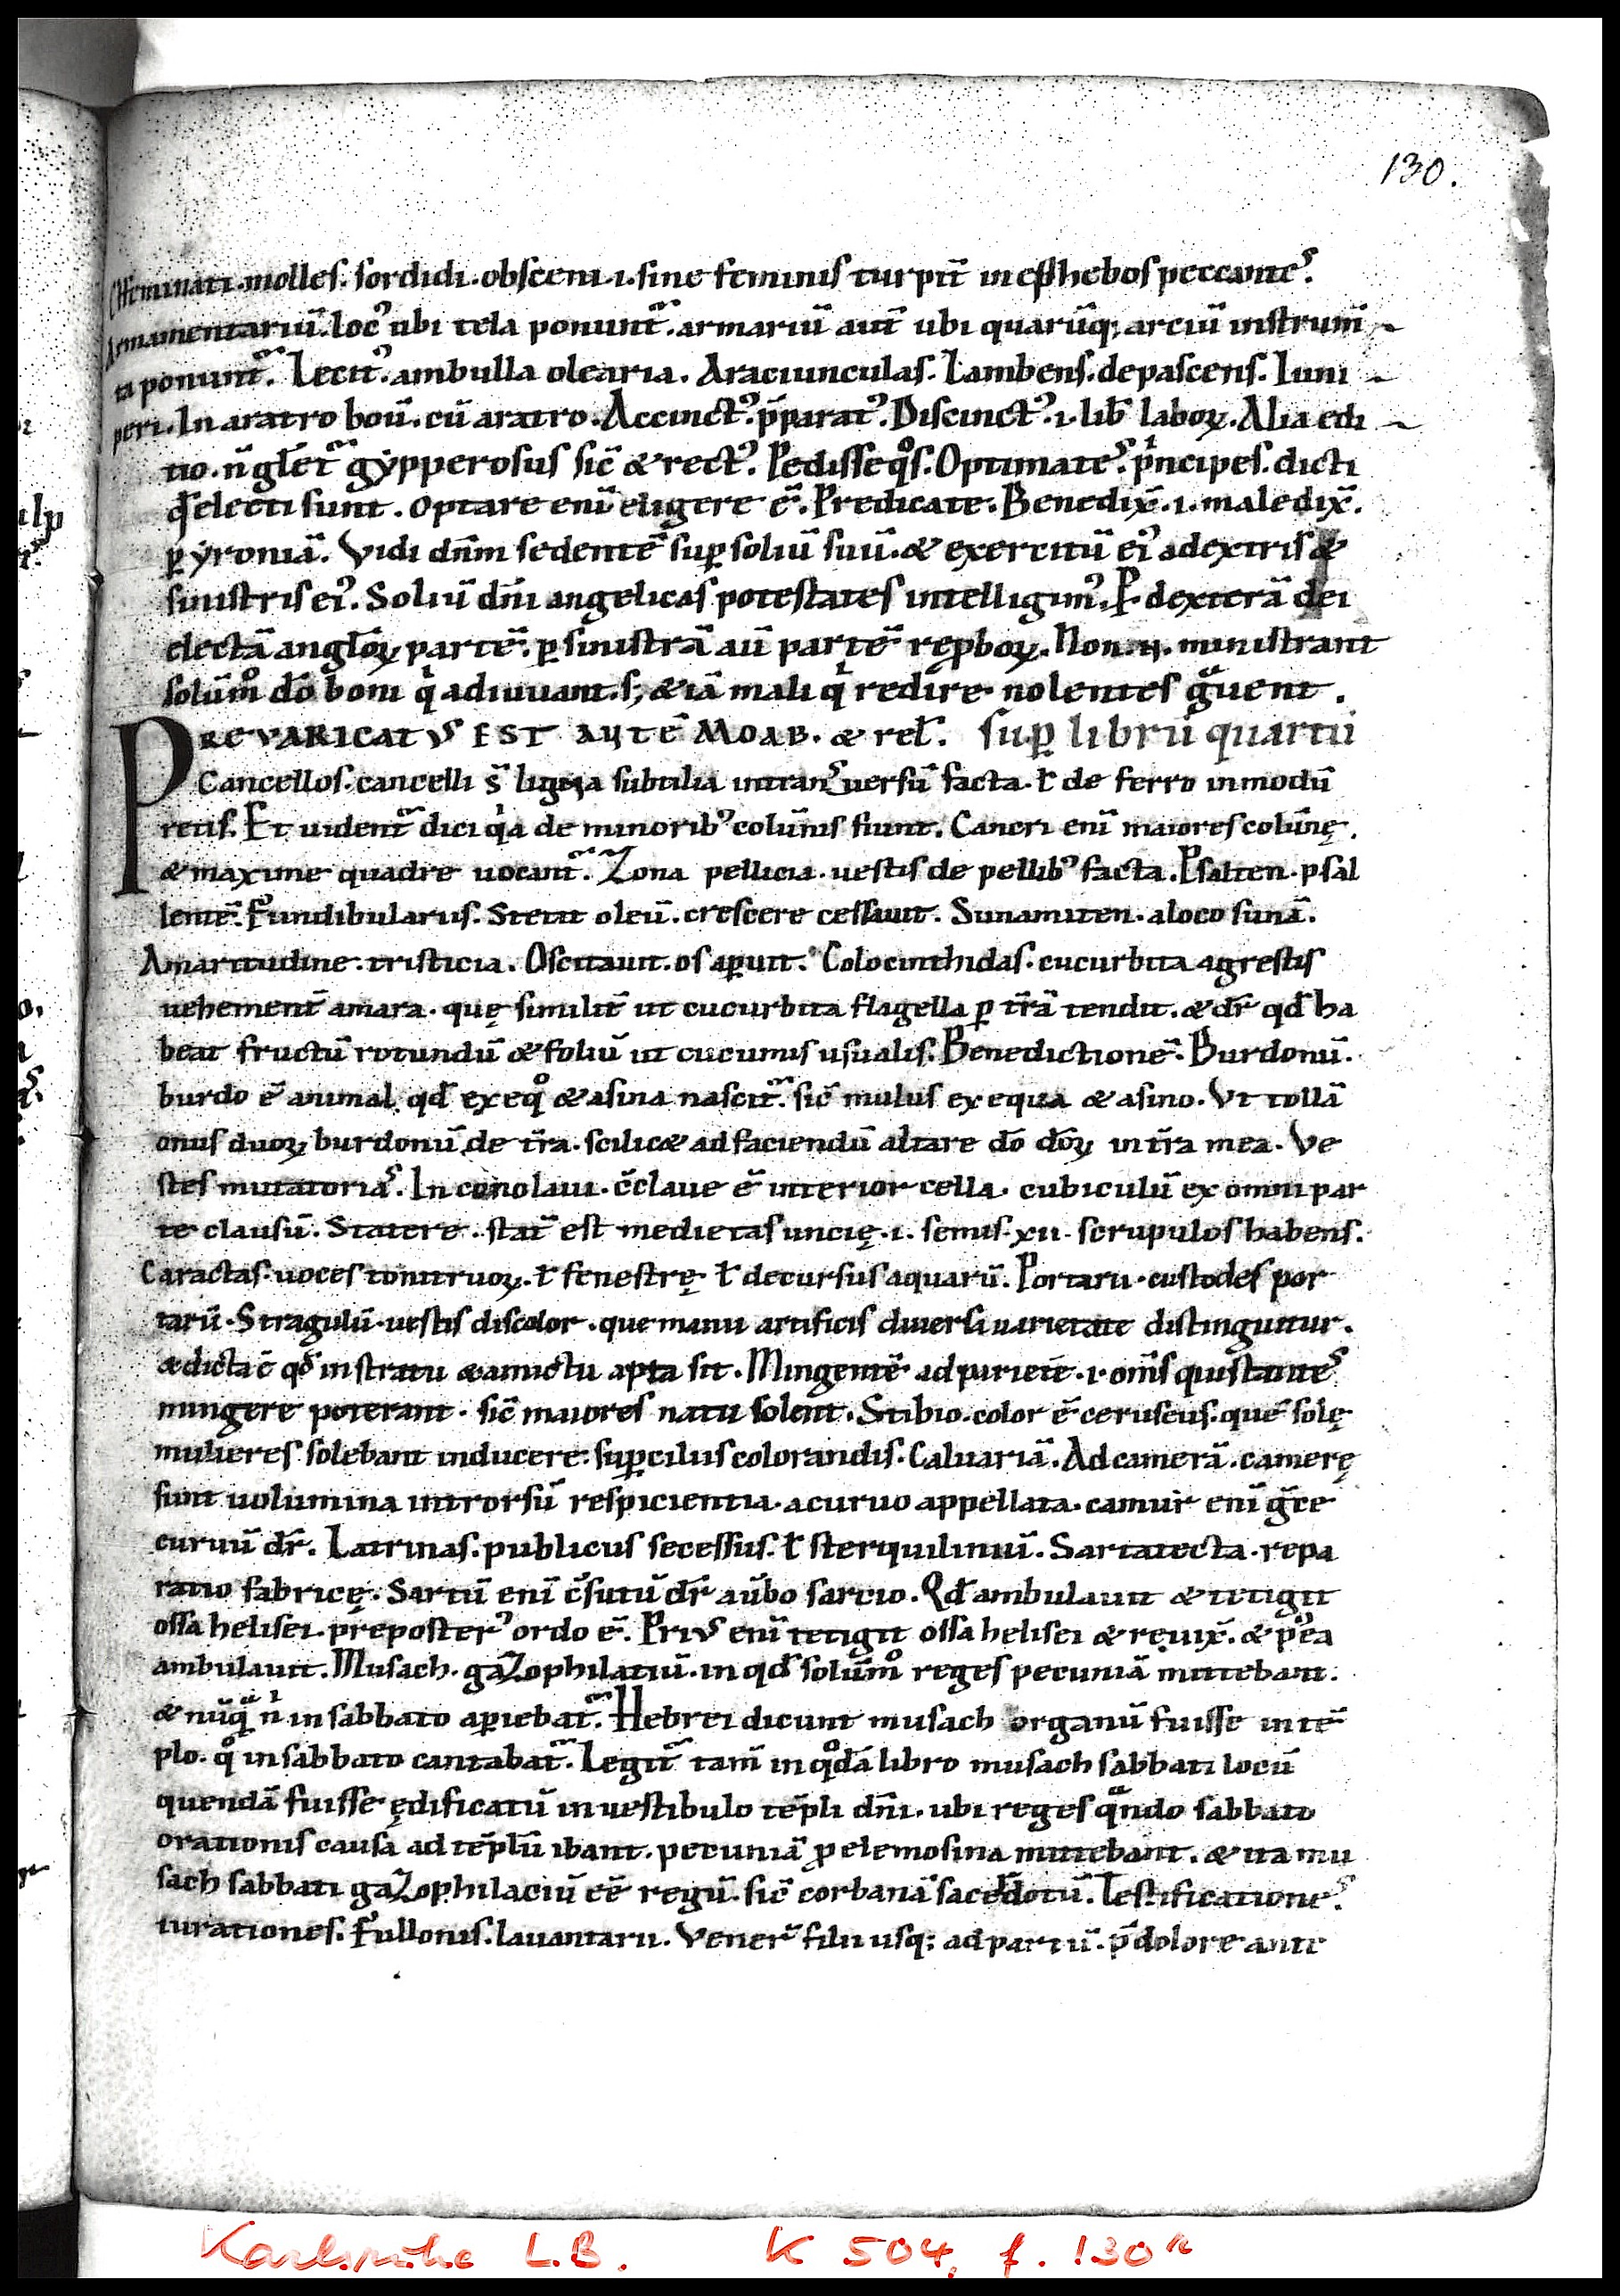 130.
Effeminati. molles. sordidi. obsceni. i. sine feminis turpit̄ in effhebos peccantes̛.
Armamentariū. locꝰ ubi tela ponunt᷑. armariū aut̄ ubi quarūq; arciū instrum̄
ta ponunt᷑. Lecitꝰ. ambulla olearia. Araciunculas. Lambens. depascens. Iuni
peri. In aratro boū. cū aratro. Accinctꝰ. p̄paratꝰ. Discinctꝰ. i. lib̄ laboꝝ. Alia edi
tio. n̄ gl̄et᷑ gẏpperosus sic̄ & rectꝰ. Pedisseqͦs. Optimates̛. pͥncipes. dicti
qd̄ electi sunt. optare eni᷑ eligere ē. Predicate. Benedix̄. i. maledix̄.
ꝑ ẏroniā. Vidi dn̄m sedentē suꝑ soliū suū. & exercitū eiꝰ adextris &
sinistris eiꝰ. Soliū dn̄i angelicas potestates intelligimꝰ. P. dexterā dei
electā angl̄oꝝ partē. ꝑ sinistrā aū partē reꝓboꝝ. Non. n. ministrant
solūmͦ dō boni qͥ adiuuant. s; & iā mali qͥ redire nolentes gͣuent.
PREVARICATVS EST AUTĒ MOAB. & rel̄. suꝑ librū quartū
Cancellos. cancelli s̄ ligna subtilia in transuersū facta. ł de ferro in modū
retis. Et uident᷑ dici qͥa de minoribꝰ colūnis fiunt. Cancri eni᷑ maiores colūnę.
& maxime quadre uocant᷑. Zona pellicia. uestis de pellibꝰ facta. Psalten. psal
lentē. Fundibularus. Stetit oleū. crescere cessauit. Sunamiten. a loco sunā.
Amaritudine. tristicia. Oscitauit. os aꝑuit. Colocinthidas. cucurbita agrestis
uehement̄ amara. quę similit̄ ut cucurbita flagella ꝑ tr̄ā tendit. & dr̄ qd̄ ha
beat fructū rotundū & foliū ut cucumis usualis. Benedictionē. Burdonū.
burdo ē animal. qd̄ ex eqͦ & asina nascit᷑. sic̄ mulus ex equa & asino. Vt tollā
onus duoꝝ burdonū de tr̄a. scilic& ad faciendū altare dō dōꝝ in tr̄a mea. Ve
stes mutatorias̛. In conolaui. c̄claue ē interior cella. cubiculū ex omni par
te clausū. Statere. stat̄ est medietas uncię. i. semis. xii. scrupulos habens.
Caractas. uoces tonitruoꝝ. ł fenestrę ł decursus aquarū. Portarii. custodes por
tarū. Stragulū. uestis discolor. que manu artificis diuersi uarietate distinguitur.
& dicta ē qd̄ in stratu & amictu apta sit. Mingentē ad parietē. i. om̄s qui stantes̛
mingere poterant. sic̄ maiores natu solent. Stibio. color ē ceruseus. quē solę
mulieres solebant inducere. suꝑciliis colorandis. Caluariā. Ad camerā. camerę
sunt uolumina introrsū respicientia. a curuo appellata. camur eni᷑ gͣce
curuū dr̄. Latrinas. publicus secessus. ł sterquiliniū. Sartatecta. repa
ratio fabricę. Sartū eni᷑ c̄sutū dr̄ aūbo sarcio. Qd̄ ambulauit & tetigit
ossa helisei. preposterꝰ ordo ē. Priꝰ eni᷑ tetigit ossa helisei & reuix̄. & pꝰea
ambulauit. Musach. gaZophilatiū. in qd̄ solūmͦ reges pecuniā mittebant.
& nūqͣ nͥ in sabbato aꝑiebat᷑. Hebrei dicunt musach organū fuisse in tē
plo. qͦ in sabbato cantabat᷑. Legit᷑ tam̄ in qͦdā libro musach sabbati locū
quendā fuisse ędificatū in uestibulo tēpli dn̄i. ubi reges qͣndo sabbato
orationis causa ad tēplū ibant. pecuniā ꝓ elemosina mittebant. & ita mu
sach sabbati gaZophilaciū cē regū. sic̄ corbanā sacerdotū. Testificationes̛.
iurationes. Fullonis. lauantarii. Vener̄ filii usq; ad partū. p̄ dolore ante
Karlsruhe L.B. K 504, f. 130r